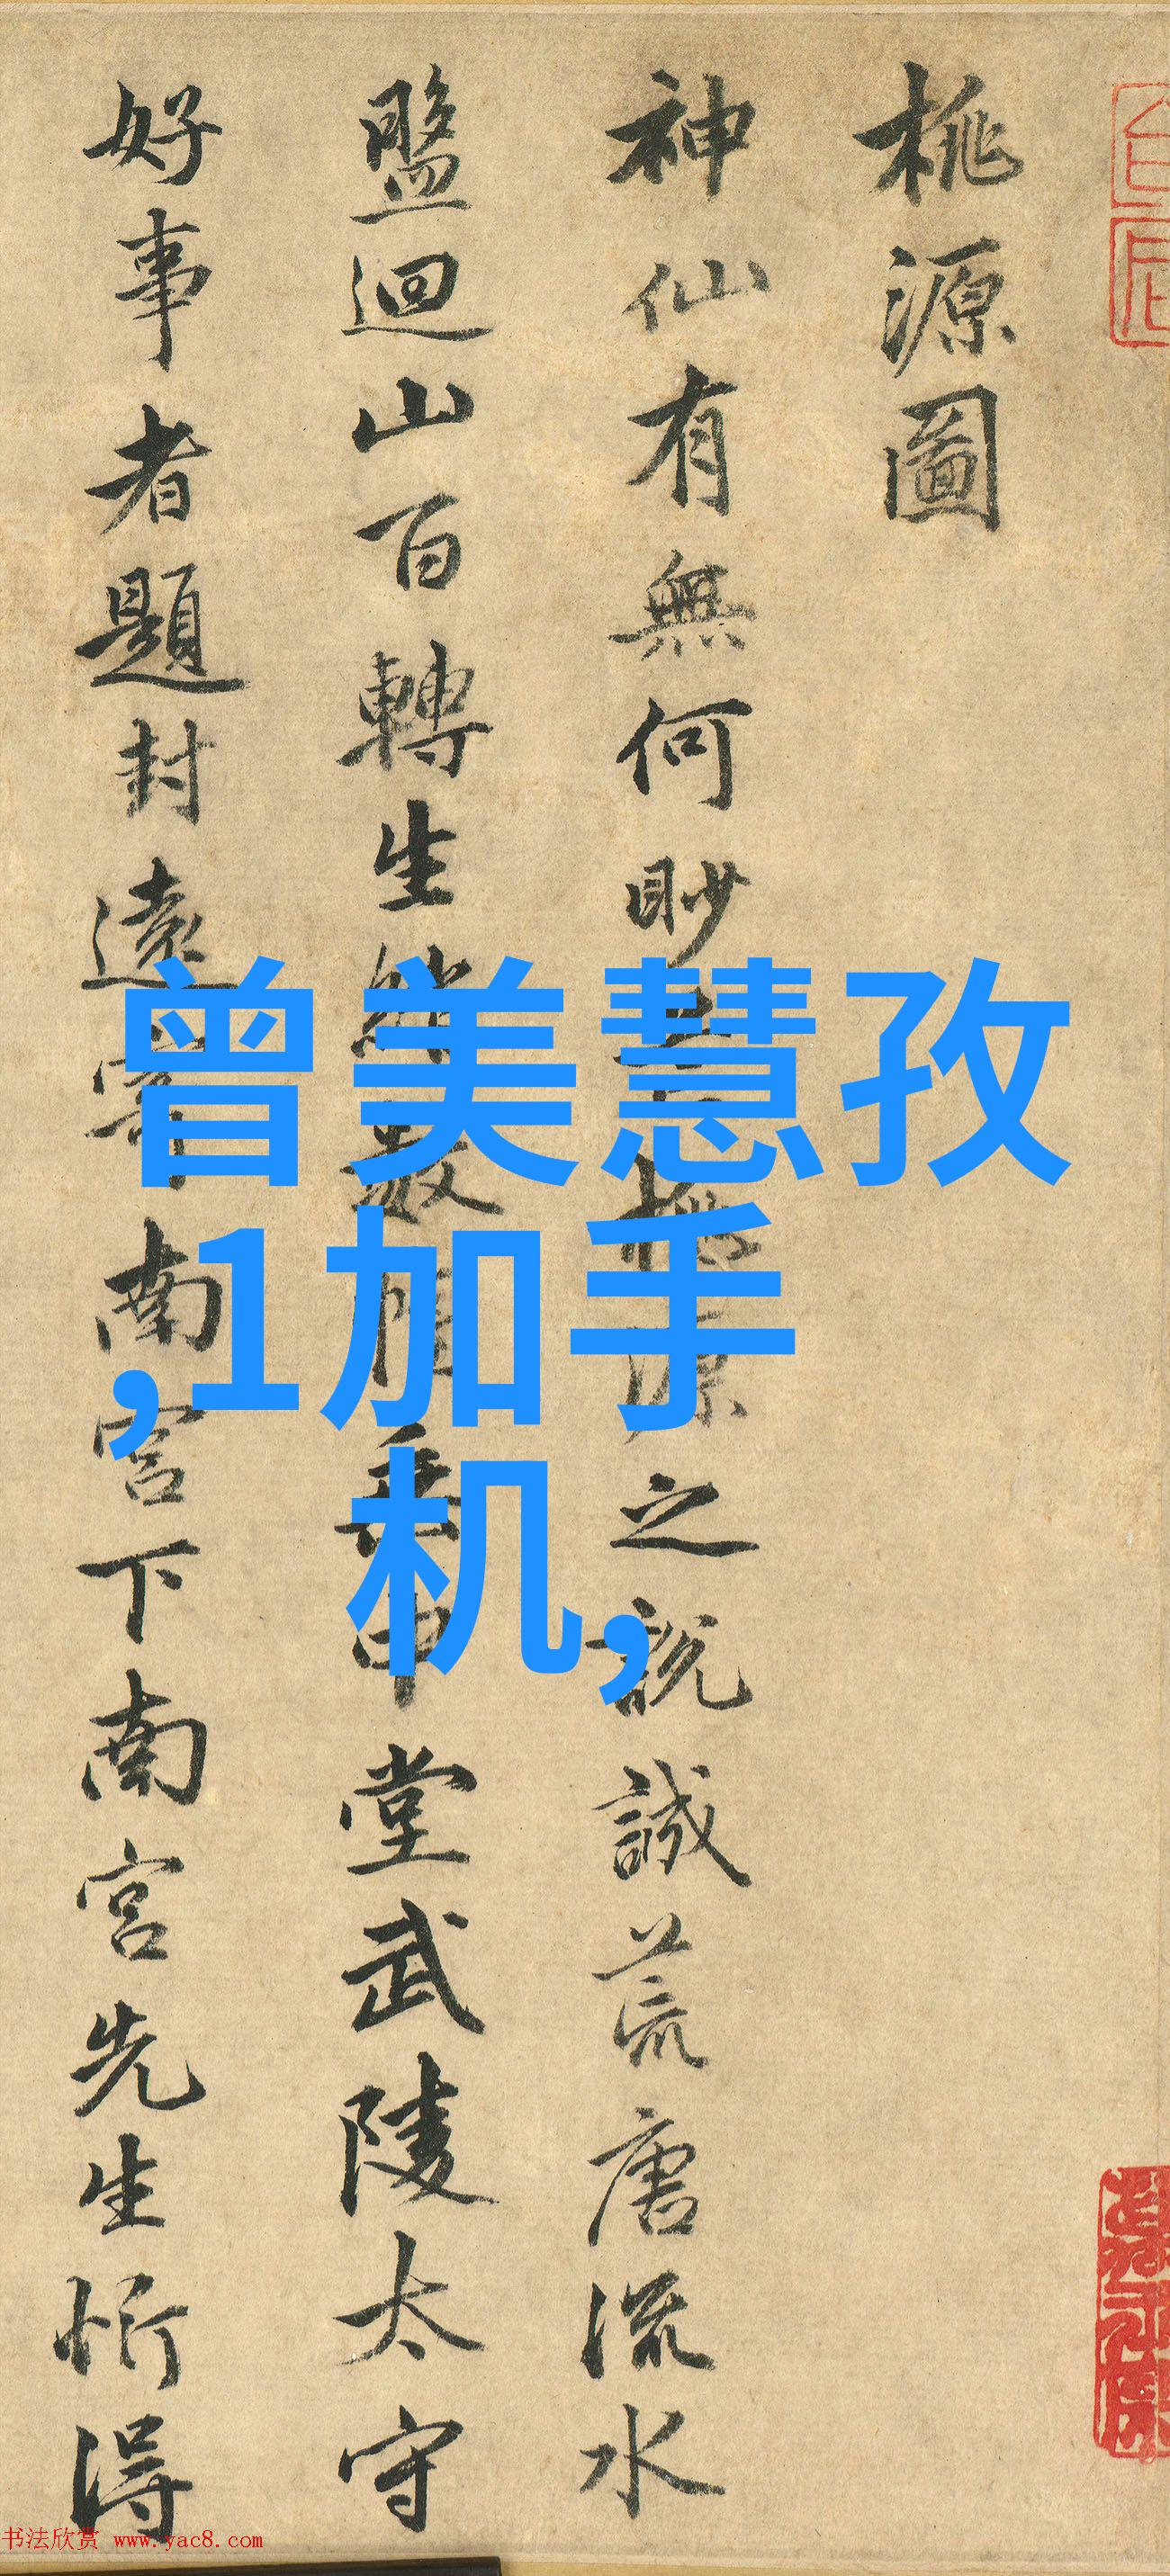 桃源圖
神仙有無何眇芒桃源之說誠荒唐流水
盤迴山百轉生綃數幅垂中堂武陵太守
好事者題封遠寄南宮下南宮先生忻得
曾美慧孜
,1加手
机,
书法欣赏 www.yac8.com